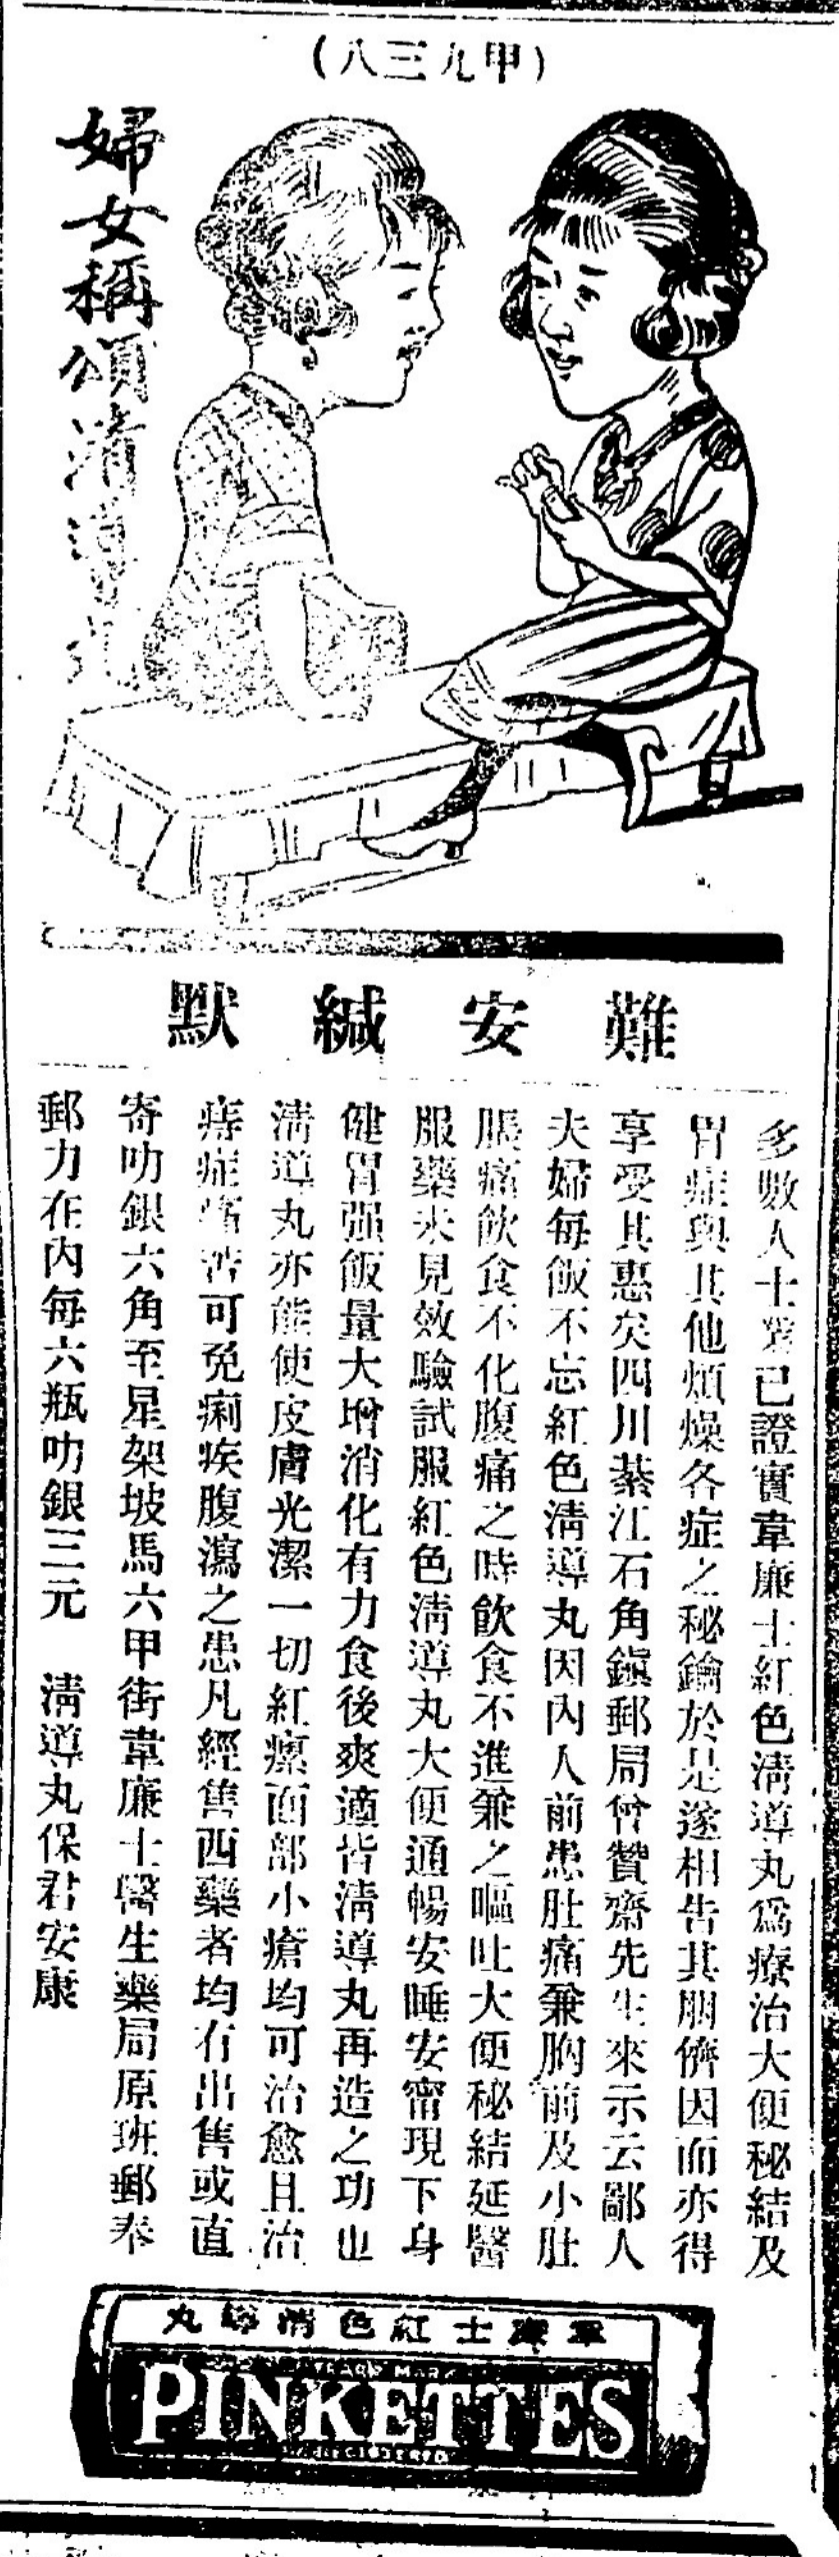 (甲九三八)
婦女稱頌清導丸
難安緘默
多數人士業已證實韋廉士紅色清導丸爲療治大便秘結及
胃症與其他煩燥各症之秘鑰於是遂相告其朋儕因而亦得
享受其惠矣四川綦江石角鎭郵局曾贊齋先生來示云鄙人
夫婦每飯不忘紅色清導丸因內人前患肚痛兼胸前及小肚
脹痛飲食不化腹痛之時飲食不進兼之嘔吐大便秘結延醫
服藥未見效驗試服紅色清導丸大便通暢安睡安甯現下身
健胃强飯量大增消化有力食後爽適皆清導丸再造之功也
清導丸亦能使皮膚光潔一切紅瘰面部小瘡均可治愈且治
痔症痛苦可免痢疾腹瀉之患凡經售西藥者均有出售或直
寄叻銀六角至星架坡馬六甲街韋廉士醫生藥局原班郵奉
郵力在內每六瓶叻銀三元 清導丸保君安康
韋廉士紅色清導丸
TRADE MARK
PINKETTES
REGISTERED